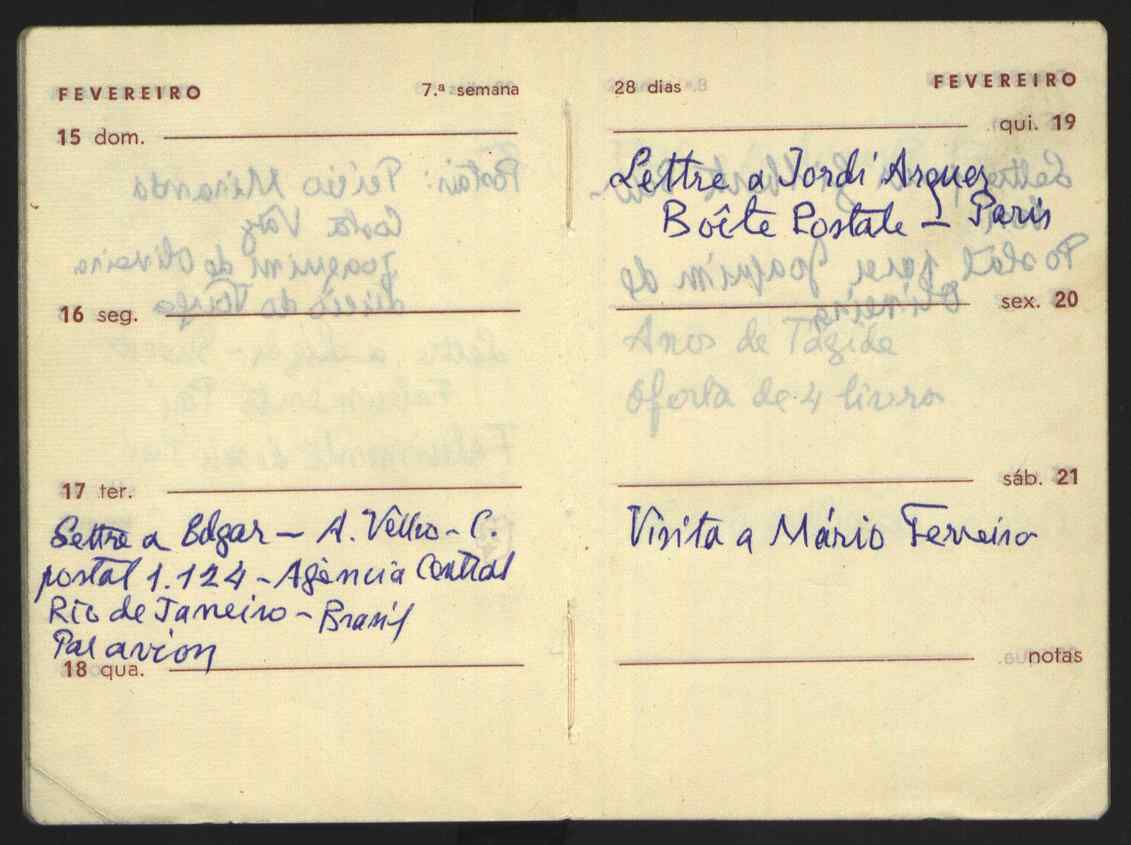 FEVEREIRO 7.ª semana
15 dom.
16 seg.
17 ter.
Lettre a Edgar – A. Velho – C.
postal 1.124 – Agência Central
Rio de Janeiro – Brasil
Par avion
18 qua.
28 dias FEVEREIRO
qui. 19
Lettre a Jordi Arquer
Boîte Postale – Paris
sex. 20
Anos de Tágide
oferta de 4 livros
sáb. 21
Visita a Mário Ferreira
notas